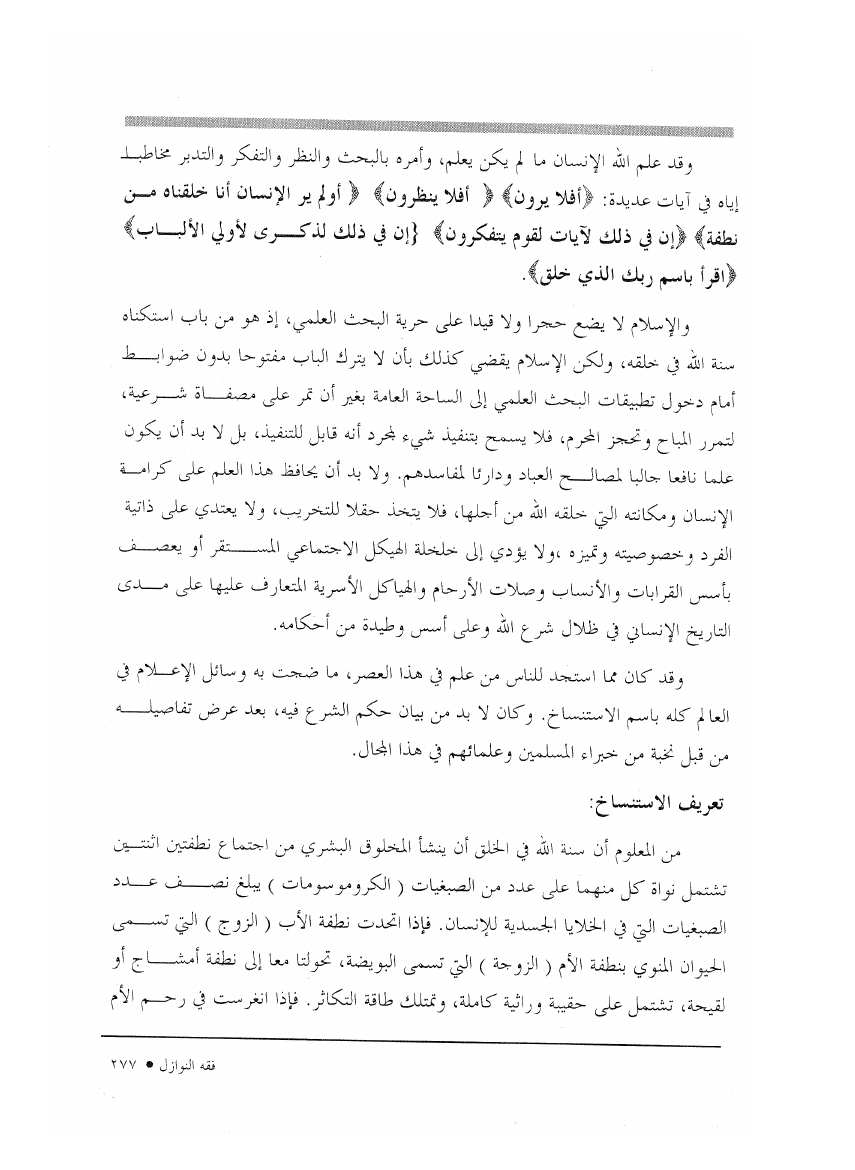 وقد علم الله الإنسان ما لم يكن يعلم، وأمره بالبحث والنظر والتفكر والتدبر مخاطبا
إياه في آيات عديدة: ﴿أفلا يرون﴾ ﴿ أفلا ينظرون﴾ ﴿ أولم ير الإنسان أنا خلقناه من
نطفة﴾ ﴿إن في ذلك لآيات لقوم يتفكرون﴾ {إن في ذلك لذكرى لأولي الألباب﴾
﴿اقرأ باسم ربك الذي خلق﴾.
والإسلام لا يضع حجرا ولا قيدا على حرية البحث العلمي، إذ هو من باب استكناه
سنة الله في خلقه، ولكن الإسلام يقضي كذلك بأن لا يترك الباب مفتوحا بدون ضوابط
أمام دخول تطبيقات البحث العلمي إلى الساحة العامة بغير أن تمر على مصفاة شرعية،
لتمرر المباح وتحجز المحرم، فلا يسمح بتنفيذ شيء لمجرد أنه قابل للتنفيذ، بل لا بد أن يكون
علما نافعا جالبا لمصالح العباد ودارئا لمفاسدهم. ولا بد أن يحافظ هذا العلم على كرامة
الإنسان ومكانته التي خلقه الله من أجلها، فلا يتخذ حقلا للتخريب، ولا يعتدي على ذاتية
الفرد وخصوصيته وتميزه ،ولا يؤدي إلى خلخلة الهيكل الاجتماعي المستقر أو يعصف
بأسس القرابات والأنساب وصلات الأرحام والهياكل الأسرية المتعارف عليها على مدى
التاريخ الإنساني في ظلال شرع الله وعلى أسس وطيدة من أحكامه.
وقد كان مما استجد للناس من علم في هذا العصر، ما ضجت به وسائل الإعلام في
العالم كله باسم الاستنساخ. وكان لا بد من بيان حكم الشرع فيه، بعد عرض تفاصيله
من قبل نخبة من خبراء المسلمين وعلمائهم في هذا المجال.
تعريف الاستنساخ:
من المعلوم أن سنة الله في الخلق أن ينشأ المخلوق البشري من اجتماع نطفتين اثنتين
تشتمل نواة كل منهما على عدد من الصبغيات ( الكروموسومات ) يبلغ نصف عدد
الصبغيات التي في الخلايا الجسدية للإنسان. فإذا اتحدت نطفة الأب ( الزوج ) التي تسمى
الحيوان المنوي بنطفة الأم ( الزوجة ) التي تسمى البويضة، تحولتا معا إلى نطفة أمشاج أو
لقيحة، تشتمل على حقيبة وراثية كاملة، وتمتلك طاقة التكاثر. فإذا انغرست في رحم الأم
فقه النوازل • ٢٧٧